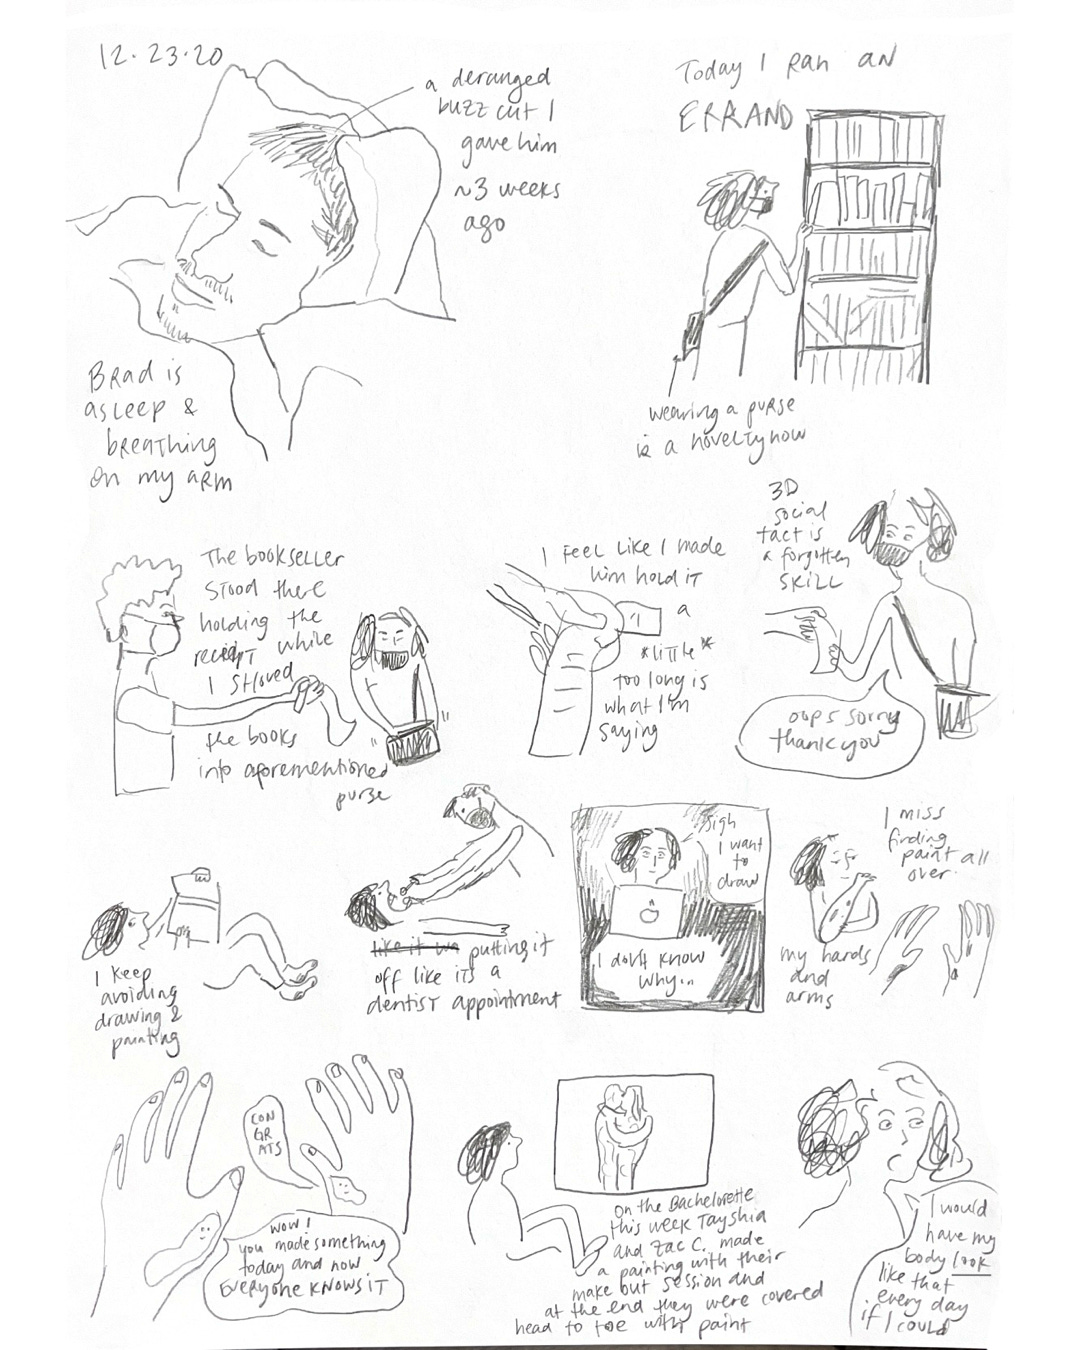 12.23.20
a deranged
buzz cut I
gave him
~3 weeks
ago
Brad is
asleep &
breathing
on my arm
Today I ran an
ERRAND
wearing a purse
is a novelty now
The bookseller
stood there
holding the
receipt while
I shoved
the books
into aforementioned
purse
I feel like I made
him hold it
a
*little*
too long is
what I'm
saying
3D
social
tact is
a forgotten
skill
oops sorry
thank you
I keep
avoiding
drawing &
painting
like it we putting it
off like it's a
dentist appointment
sigh
I want
to
draw
I don't know
why...
I miss
finding
paint all
over
my hands
and
arms
CON
GR
ATS
wow!
you made something
today and now
EVERYONE KNOWS IT
On the Bachelorette
this week Tayshia
and Zac C. made
a painting with their
make out session and
at the end they were covered
head to toe with paint
I would
have my
body look
like that
every day
if I could